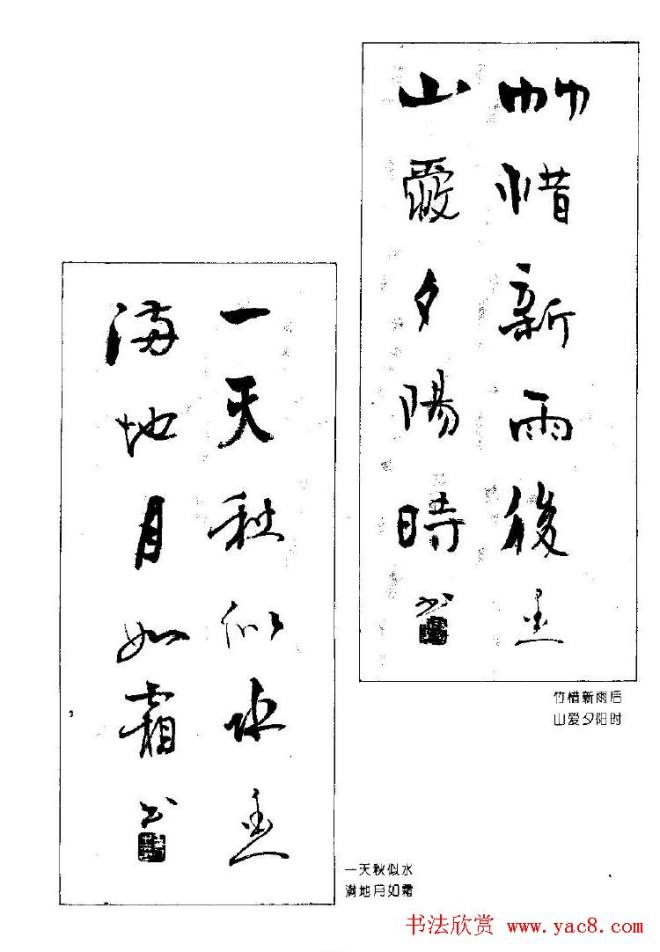 竹惜新雨後
山愛夕陽時
书
竹惜新雨后
山爱夕阳时
一天秋似水
满地月如霜
书
一天秋似水
满地月如霜
书法欣赏 www.yac8.com